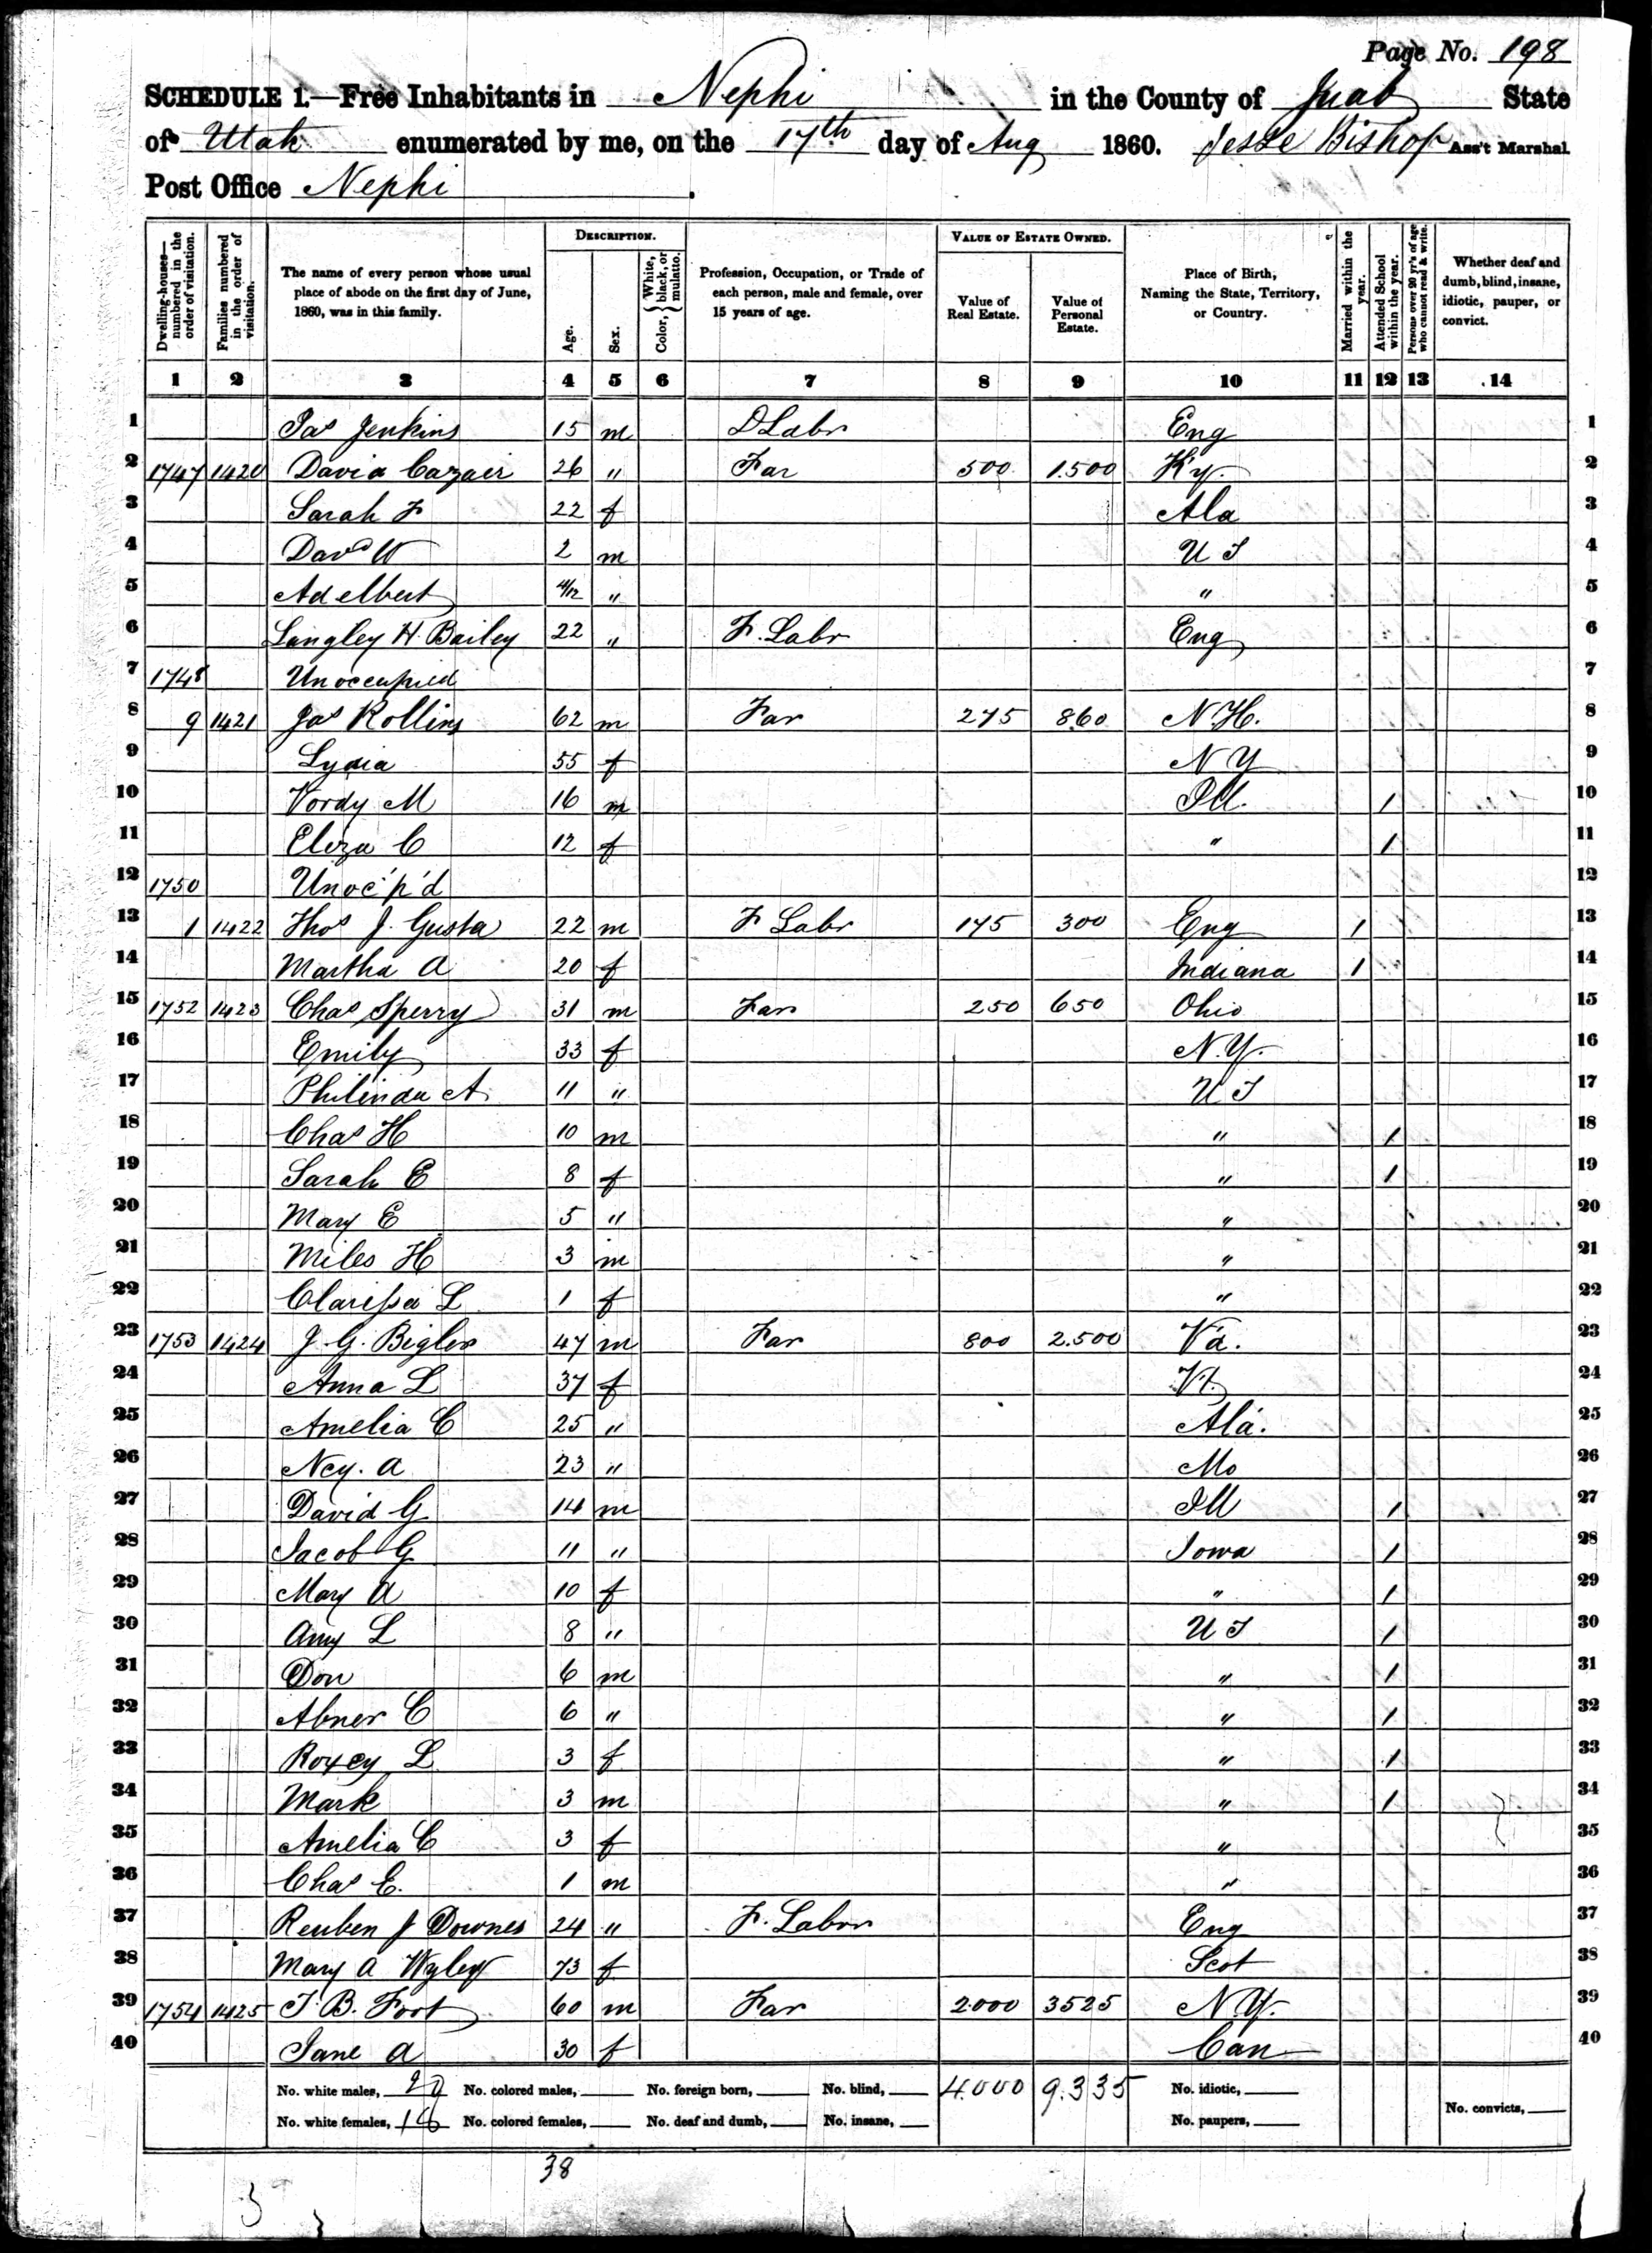 Page No. 198
SCHEDULE 1.—Free Inhabitants in Nephi in the County of Juab State
of Utah enumerated by me, on the 17th day of Aug 1860. Jesse Bishop Ass't Marshal.
Post Office Nephi.
Dwelling-houses—numbered in the order of visitation. Families numbered in the order of visitation. The name of every person whose usual place of abode on the first day of June, 1860, was in this family. DESCRIPTION. Age. Sex. Color, { White, black, or mulatto. Profession, Occupation, or Trade of each person, male and female, over 15 years of age. VALUE OF ESTATE OWNED. Value of Real Estate. Value of Personal Estate. Place of Birth, Naming the State, Territory, or Country. Married within the year. Attended School within the year. Persons over 20 yr's of age who cannot read & write. Whether deaf and dumb, blind, insane, idiotic, pauper, or convict.
1 2 3 4 5 6 7 8 9 10 11 12 13 14
1 Jas Jenkins 15 m D Labr Eng 1
2 1747 1420 David Cazair 26 " Far 500 1.500 Ky. 2
3 Sarah F 22 f Ala 3
4 David W 2 m U T 4
5 Adelbert 4/12 " " 5
6 Langley H. Bailey 22 " F. Labr Eng 6
7 1748 Unoccupied 7
8 9 1421 Jas Rollins 62 m Far 275 860 N.H. 8
9 Lydia 55 f N Y 9
10 Vordy M 16 m Ill. 1 10
11 Eliza C 12 f " 1 11
12 1750 Unoc'p'd 12
13 1 1422 Thos J. Gusta 22 m F Labr 175 300 Eng 1 13
14 Martha A 20 f Indiana 1 14
15 1752 1423 Chas Sperry 31 m Far 250 650 Ohio 15
16 Emily 33 f N.Y. 16
17 Philinda A. 11 " U T 17
18 Chas H 10 m " 1 18
19 Sarah E 8 f " 1 19
20 Mary E 5 " " 20
21 Miles H 3 m " 21
22 Clarissa L 1 f " 22
23 1753 1424 J. G. Bigler 47 m Far 800 2.500 Va. 23
24 Anna L 37 f Vt. 24
25 Amelia C 25 " Ala. 25
26 Ncy. A 23 " Mo 26
27 David G 14 m Ill 1 27
28 Jacob G 11 " Iowa 1 28
29 Mary A 10 f " 1 29
30 Amy L 8 " U T 1 30
31 Don 6 m " 1 31
32 Abner C 6 " " 1 32
33 Roxey L 3 f " 1 33
34 Mark 3 m " 1 34
35 Amelia C 3 f " 35
36 Chas E. 1 m " 36
37 Reuben J Downes 24 " F. Labor Eng 37
38 Mary A Wyley 73 f Scot 38
39 1754 1425 T. B. Foot 60 m Far 2.000 3525 N.Y. 39
40 Jane A 30 f Can 40
No. white males, 20 No. colored males, No. foreign born, No. blind, 4.000 9.335 No. idiotic,
No. white females, 18 No. colored females, No. deaf and dumb, No. insane, No. paupers, No. convicts,
38